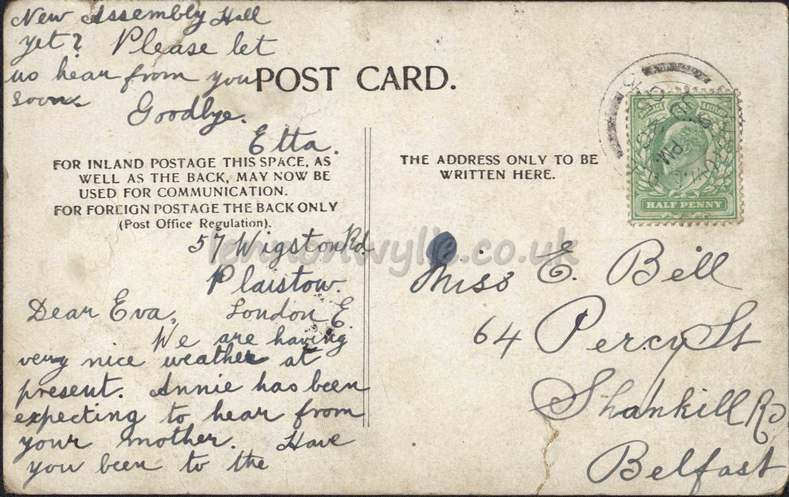 New Assembly Hall
yet? Please let
us hear from you
soon.
Goodbye.
Etta.
POST CARD.
FOR INLAND POSTAGE THIS SPACE, AS
WELL AS THE BACK, MAY NOW BE
USED FOR COMMUNICATION.
FOR FOREIGN POSTAGE THE BACK ONLY
(Post Office Regulation).
57 Wigston Rd
Plaistow.
London E.
Dear Eva,
We are having
very nice weather at
present. Annie has been
expecting to hear from
your mother. Have
you been to the
THE ADDRESS ONLY TO BE
WRITTEN HERE.
HALF PENNY
PM
Miss E. Bell
64 Percy St
Shankill Rd
Belfast